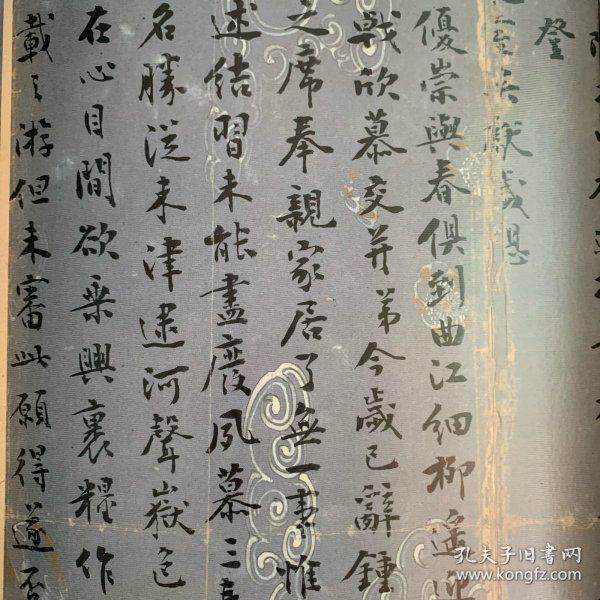 登
歲恩
優崇與春俱到曲江細柳遥
戟欣慕交并弟今歲已辭鍾
之席奉親家居了無一事惟
述結習未能盡廢夙慕三
名勝從未津逮河聲嶽色
在心目間欲乘興裹糧作
載之游但未審此願得遂否
孔夫子旧书网
www.kongfz.com